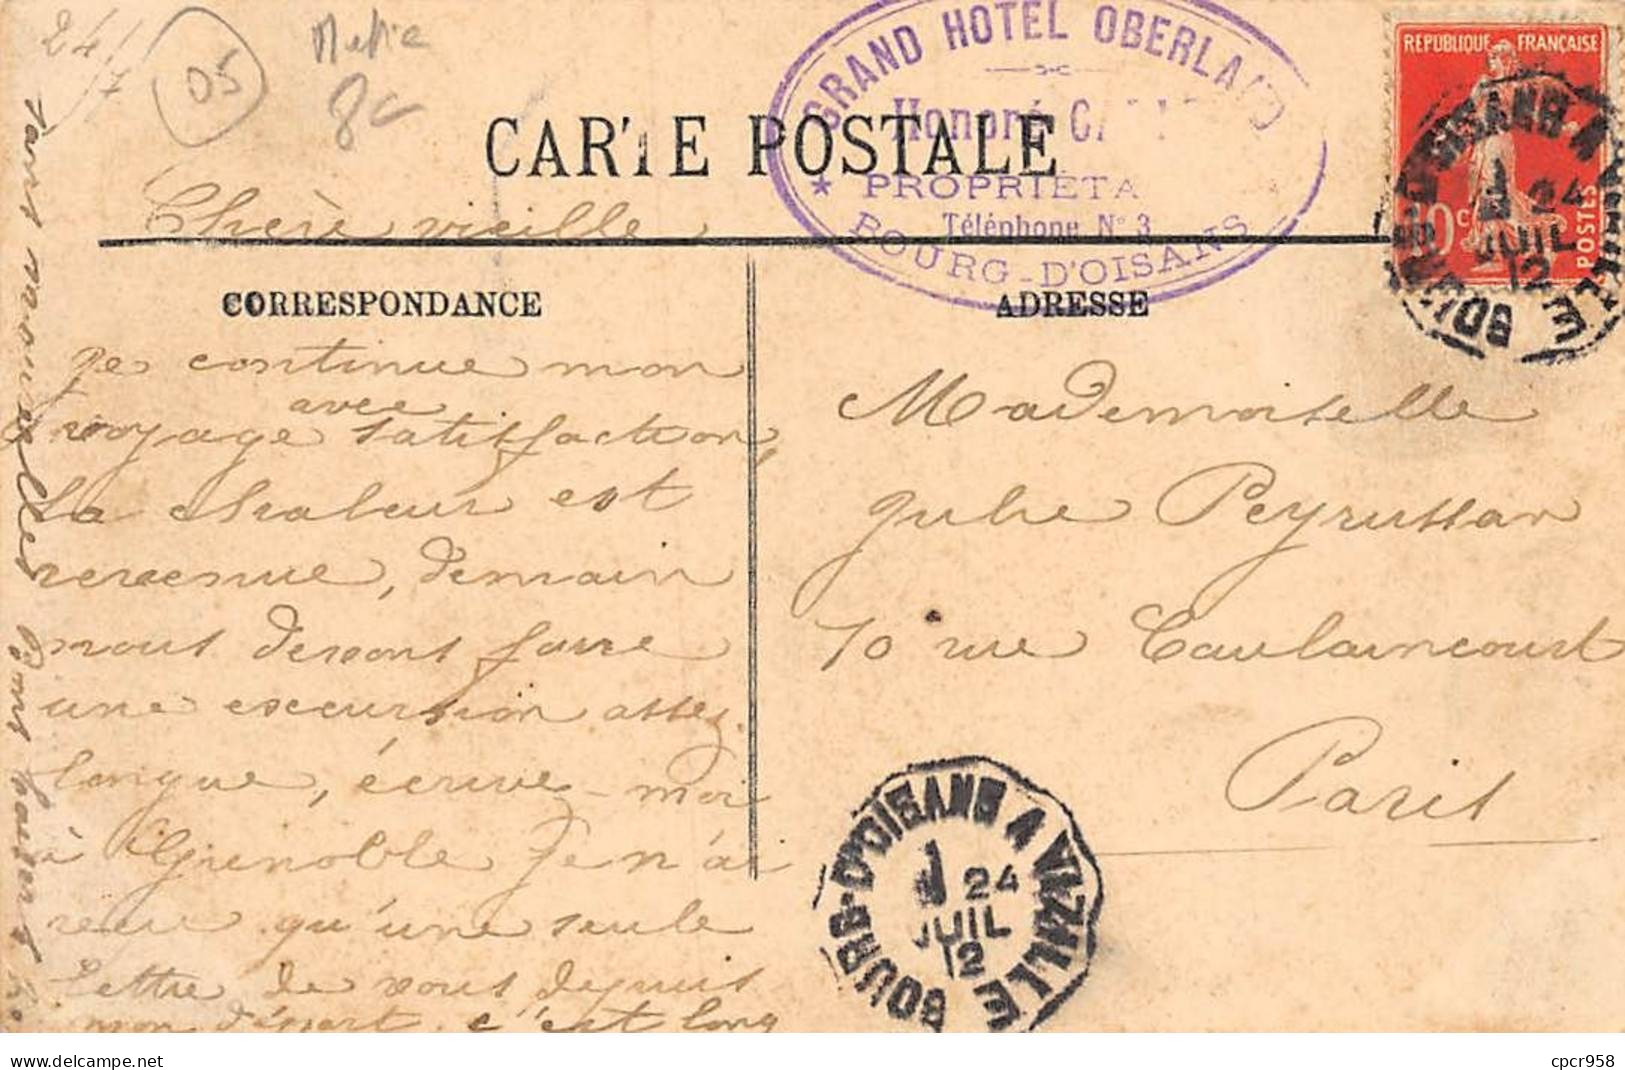 24/7
05
8c
GRAND HOTEL OBERLAND
Honoré
PROPRIETA
Téléphone N° 3
BOURG-D'OISANS
REPUBLIQUE FRANÇAISE
10c
POSTES
BOURG-D'OISANS A VIZILLE
24
JUIL
12
CARTE POSTALE
Chère vieille
CORRESPONDANCE
ADRESSE
Je continue mon
voyage avec satisfaction,
la chaleur est
revenue, demain
nous devons faire
une excursion assez
longue, écrive-moi
à Grenoble je n'ai
reçu qu'une seule
lettre de vous depuis
mon départ c'est long
sans nouvelles
Mademoiselle
Julie Peyrussan
70 rue Caulaincourt
Paris
BOURG-D'OISANS A VIZILLE
24
JUIL
12
delcampe.net
cpcr958